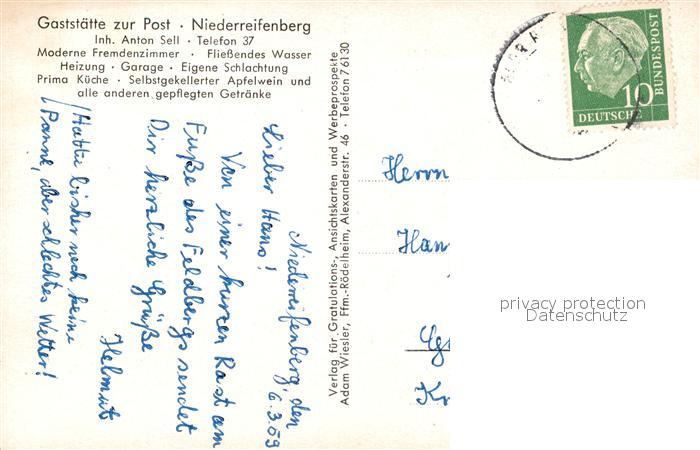 Gaststätte zur Post · Niederreifenberg
Inh. Anton Sell · Telefon 37
Moderne Fremdenzimmer · Fließendes Wasser
Heizung · Garage · Eigene Schlachtung
Prima Küche · Selbstgekellerter Apfelwein und
alle anderen gepflegten Getränke
Niederreifenberg, den
6.3.59
Lieber Hans!
Von einer kurzen Rast am
Fuße des Feldbergs sendet
Dir herzliche Grüße
Helmut
/Hatte bisher noch keine
Panne, aber schlechtes Wetter!
Verlag für Gratulations-, Ansichtskarten und Werbeprospekte
Adam Wiesler, Ffm.-Rödelheim, Alexanderstr. 46 · Telefon 7 61 30
10
DEUTSCHE
BUNDESPOST
Herrn
Han
Kr
privacy protection
Datenschutz